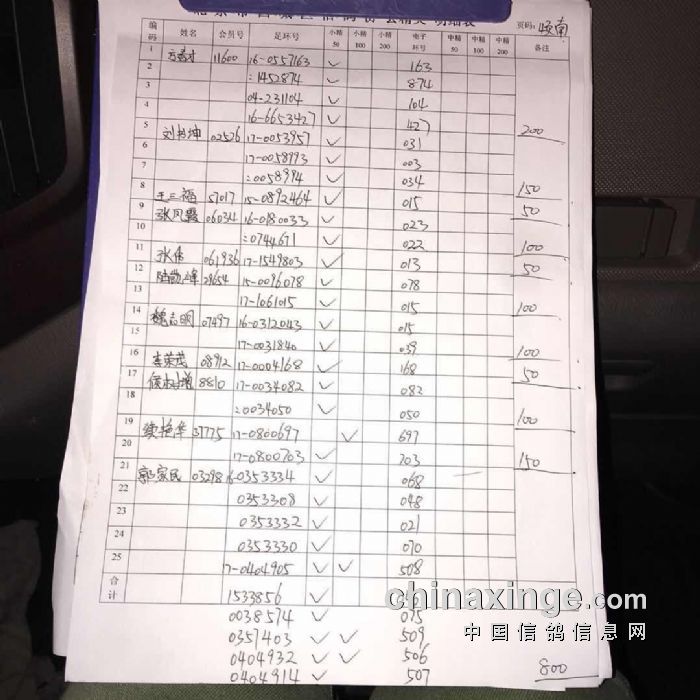 页码: 顺南
编码 姓名 会员号 足环号 小精50 小精100 小精200 电子环号 中精50 中精100 中精200 备注
1 11600 16-0557163 ✓ 163
2 :1452874 ✓ 874
3 04-231104 ✓ 104
4 16-6653427 ✓ 427 200
5 刘书坤 02526 17-0053957 ✓ 031
6 17-0058993 ✓ 003
7 :0058994 ✓ 034 150
8 王三福 57017 15-0892464 ✓ 015 50
9 张凤霞 06034 16-0180033 ✓ 023
10 :0744671 ✓ 022 100
11 张伟 061936 17-1549803 ✓ 013 50
12 15-0096078 ✓ 078
17-1061015 ✓ 015 100
14 魏志明 07497 16-0312043 ✓ 015
15 17-0031840 ✓ 039 100
16 李荣茂 08912 17-0004168 ✓ 168 50
17 8810 17-0034082 ✓ 082
18 :0034050 ✓ 050 100
19 续艳华 37775 17-0800697 ✓ 697
20 17-0800703 ✓ 703 150
21 郭家民 03298 16-0353334 ✓ 068
22 0353308 ✓ 048
23 0353332 ✓ 021
24 0353330 ✓ 070
25 17-0404905 ✓ ✓ 508
合计 1533856 ✓
0038574 ✓ 075
0357403 ✓ ✓ 509
0404932 ✓ ✓ 506
0404914 ✓ 507 800
chinaxinge.com
中国信鸽信息网